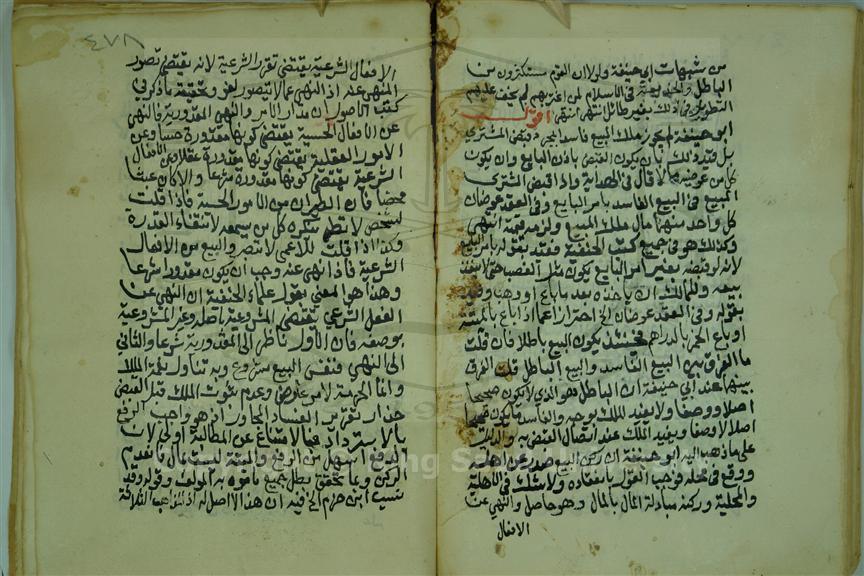 من شبهات ابي حنيفة ولولا ان القوم مستكثرون من
الباطل والخديعة في الاسلام لمن اغتر بهم لم يخف عليهم
التطويل في ذلك بغير طائل انتهى انتهى اقول
ابو حنيفة لم يجوز ملك المبيع فاسدا بمجرد قبض المشتري
بل قيد ذلك بان يكون القبض باذن البايع وان يكون
كل من عوضيه مالا قال في الهداية واذا قبض المشتري
المبيع في البيع الفاسد بامر البايع وفي العقد عوضان
كل واحد منهما مال ملك المبيع ولزمه قيمته انتهى
وكذلك هو في جميع كتب الحنفية فقيد بقوله بامر البايع
لانه لو قبضه بغير امر البايع يكون مثل الغصب حتى لا ينفذ
بيعه وللمالك ان ياخذه بعد ما باع او وهب وقيد
بقوله وفي العقد عوضان الخ احترازا عما اذا باع بالميتة
او باع الحر بالدراهم فحينئذ يكون البيع باطلا فان قلت
ما الفرق بين البيع الفاسد والبيع الباطل قلت الفرق
بينهما عند ابي حنيفة ان الباطل هو الذي لا يكون صحيحا
اصلا ووصفا ولا يفيد الملك بوجه والفاسد ما يكون صحيحا
اصلا لا وصفا ويفيد الملك عند اتصال القبض به والدليل
على ما ذهب اليه ابو حنيفة ان ركن البيع صدر عن اهله
ووقع في محله فوجب القول بانعقاده ولا شك في الاهلية
والمحلية وركنه مبادلة المال بالمال وهو حاصل والنهي عن
الافعال
٤٧٨
الافعال الشرعية يقتضي تقرر الشرعية لانه يقتضي تصور
المنهي عنه اذ النهي عما لا يتصور لغو وتحقيقه ما ذكر في
كتب الاصول ان مدار الامر والنهي المقدورية فالنهي
عن الافعال الحسية يقتضي كونها مقدورة حسا وعن
الامور العقلية يقتضي كونها مقدورة عقلا وفي الافعال
الشرعية يقتضي كونها مقدورة شرعا والا كان عبثا
محضا فان الطيران من الامور الحسية فاذا قلت
لشخص لا تطر ينكره كل من يسمعه لانتفاء القدرة
وكذا اذا قلت للاعمى لا تبصر والبيع من الافعال
الشرعية فاذا نهى عنه وجب ان يكون مقدورا شرعا
وهذا هو معنى بقول علماء الحنفية ان النهي عن
الفعل الشرعي يقتضي المشروعية باصله وغير المشروعية
بوصفه فان الاول ناظر الى المقدورية شرعا والثاني
الى النهي فنفس البيع مشروع وبه تناول نعمة الملك
وانما الحرمة لامر عارض وعدم ثبوت الملك قبل القبض
حذار تقرير الفساد المجاور اذ هو واجب الرفع
بالاسترداد فبالامتناع عن المطالبة اولى لان
الدفع اسهل من الرفع والميتة ليست بمال فانعدم
الركن وبما تحقق بطل جميع ما فوه به المؤلف وقوله وقد
نسب ابن حزم الخ فيه ان هذا لا اصل له اذ مذاهب الثلاثة